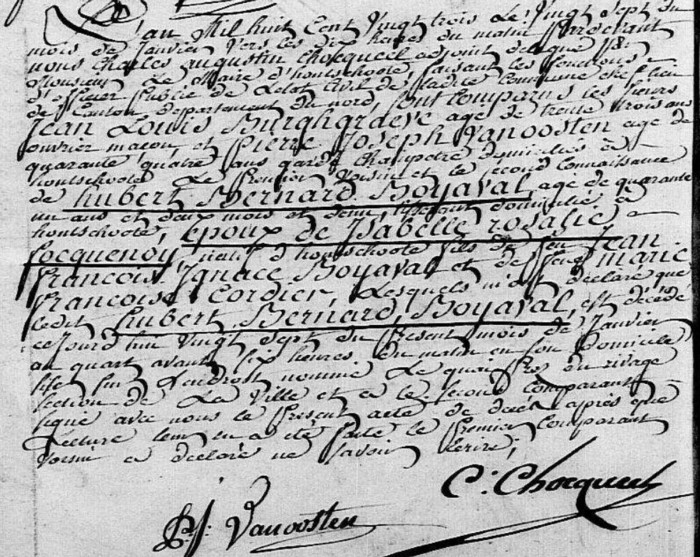 L'an Mil huit Cent Vingt trois Le Vingt Sept du
mois de Janvier Vers les dix heures du matin Pardevant
nous Charles Augustin Chocqueel adjoint delegué de
Monsieur Le Maire d'hontschoote, faisant les fonctions
d'officier Public de Letat Civil de ladite Commune chef lieu
de Canton departement du nord, sont comparus les sieurs
Jean Louis Burghgraeve agé de trente trois ans
ouvrier macon, et Pierre Joseph Vanoosten agé de
quarante quatre ans garde Champetre domiciliés à
hontschoote Le Premier Voisin et le second Connaissance
de hubert Bernard Boyaval, agé de quarante
un ans et deux mois et demi, domicilié à
hontschoote, époux de Isabelle rosalie
Locquenoy, natif d'hontschoote fils de feu Jean
francois Ignace Boyaval et de feue marie
francoise Cordier, Lesquels m'ont declaré que
Ledit hubert Bernard Boyaval, est décédé
cejourd'hui Vingt Sept du Present mois de Janvier
au quart avant six heures du matin en son domicile
sise sur L'endroit nommé Le quai du rivage
section de La Ville et a le second comparant
signé avec nous le Present acte de décès après que
Lecture leur en a été faite le Premier Comparant
Voisin a declaré ne savoir écrire;
C: Chocqueel
P. J. Vanoosten